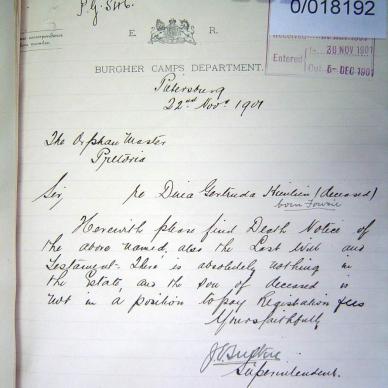 P.G. 546.
0/018192
E R.
30 NOV 1901
Entered
Out 5- DEC 1901
BURGHER CAMPS DEPARTMENT.
Petersburg
22nd Novr 1901
The Orphan Master
Pretoria
Sir re Dina Gertruda (deceased)
born Fourie
Herewith please find Death Notice of
the above named, also the Last Will and
Testament. There is absolutely nothing in
the Estate, and the son of deceased is
not in a position to pay Registration fees
Yours faithfully
Superintendent.